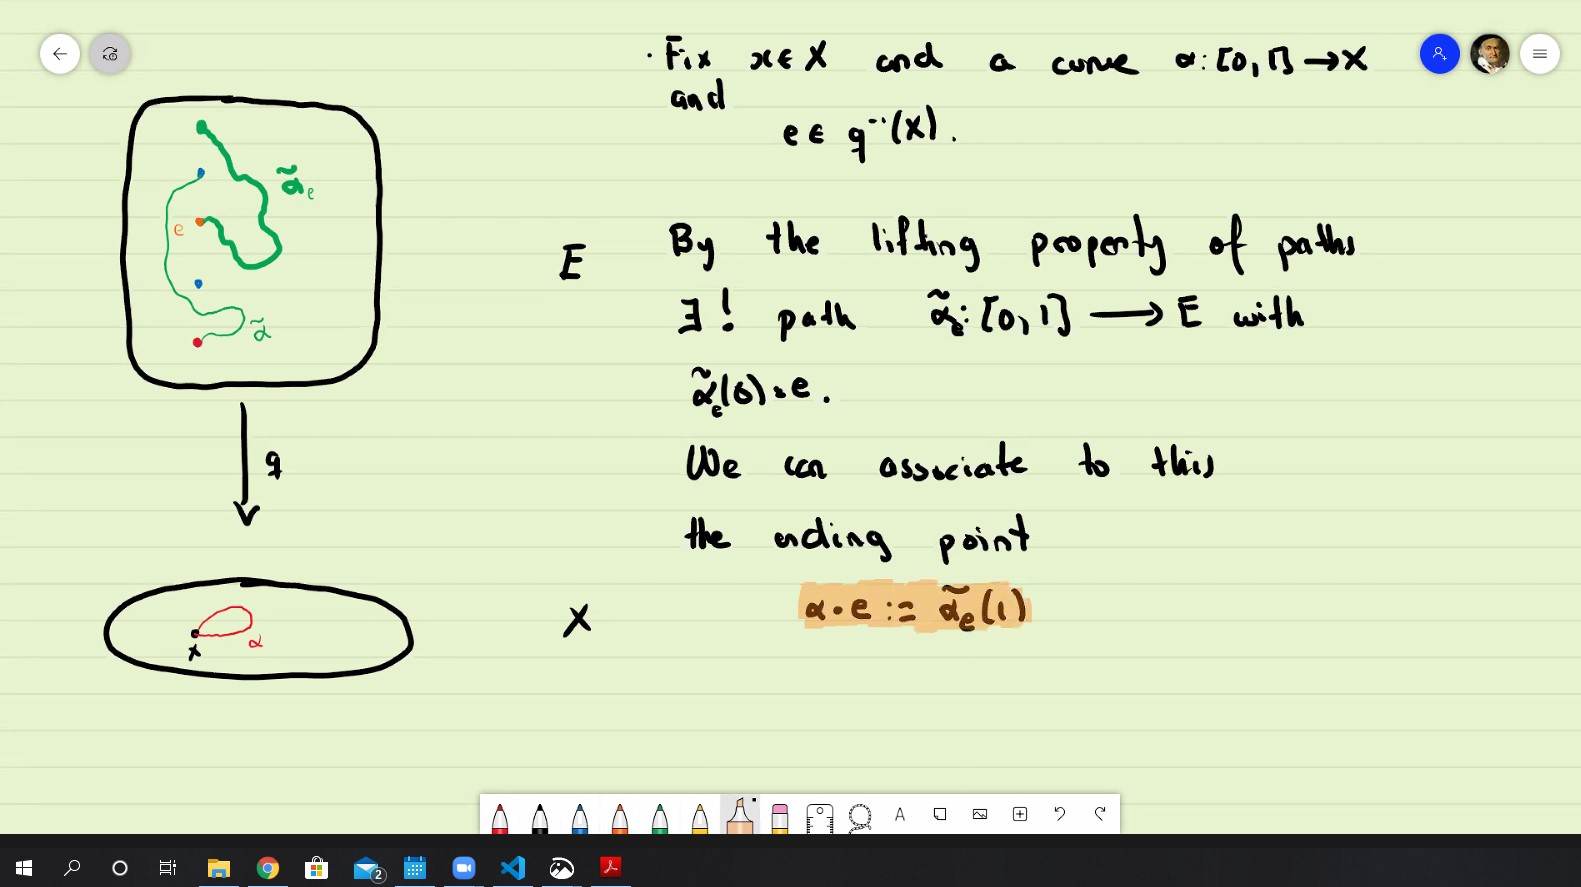 · Fix x ∈ X and a curve α: [0,1] → X
and
e ∈ q⁻¹(x).
By the lifting property of paths
∃! path α̃ₑ: [0,1] → E with
α̃ₑ(0) = e.
We can associate to this
the ending point
α · e := α̃ₑ(1)
α̃ₑ
e
α̃
E
q
x
α
X
A
2